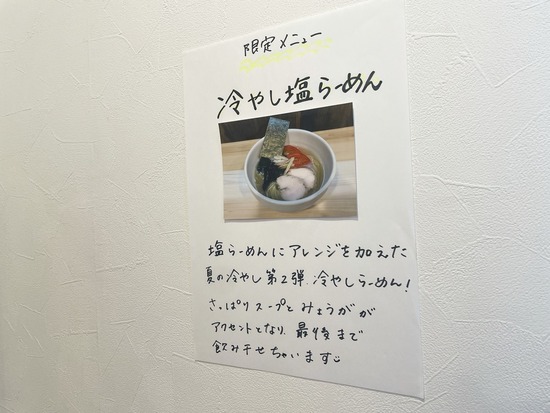 限定メニュー
冷やし塩らーめん
塩らーめんにアレンジを加えた
夏の冷やし第2弾、冷やしらーめん！
さっぱりスープとみょうがが
アクセントとなり、最後まで
飲み干せちゃいます